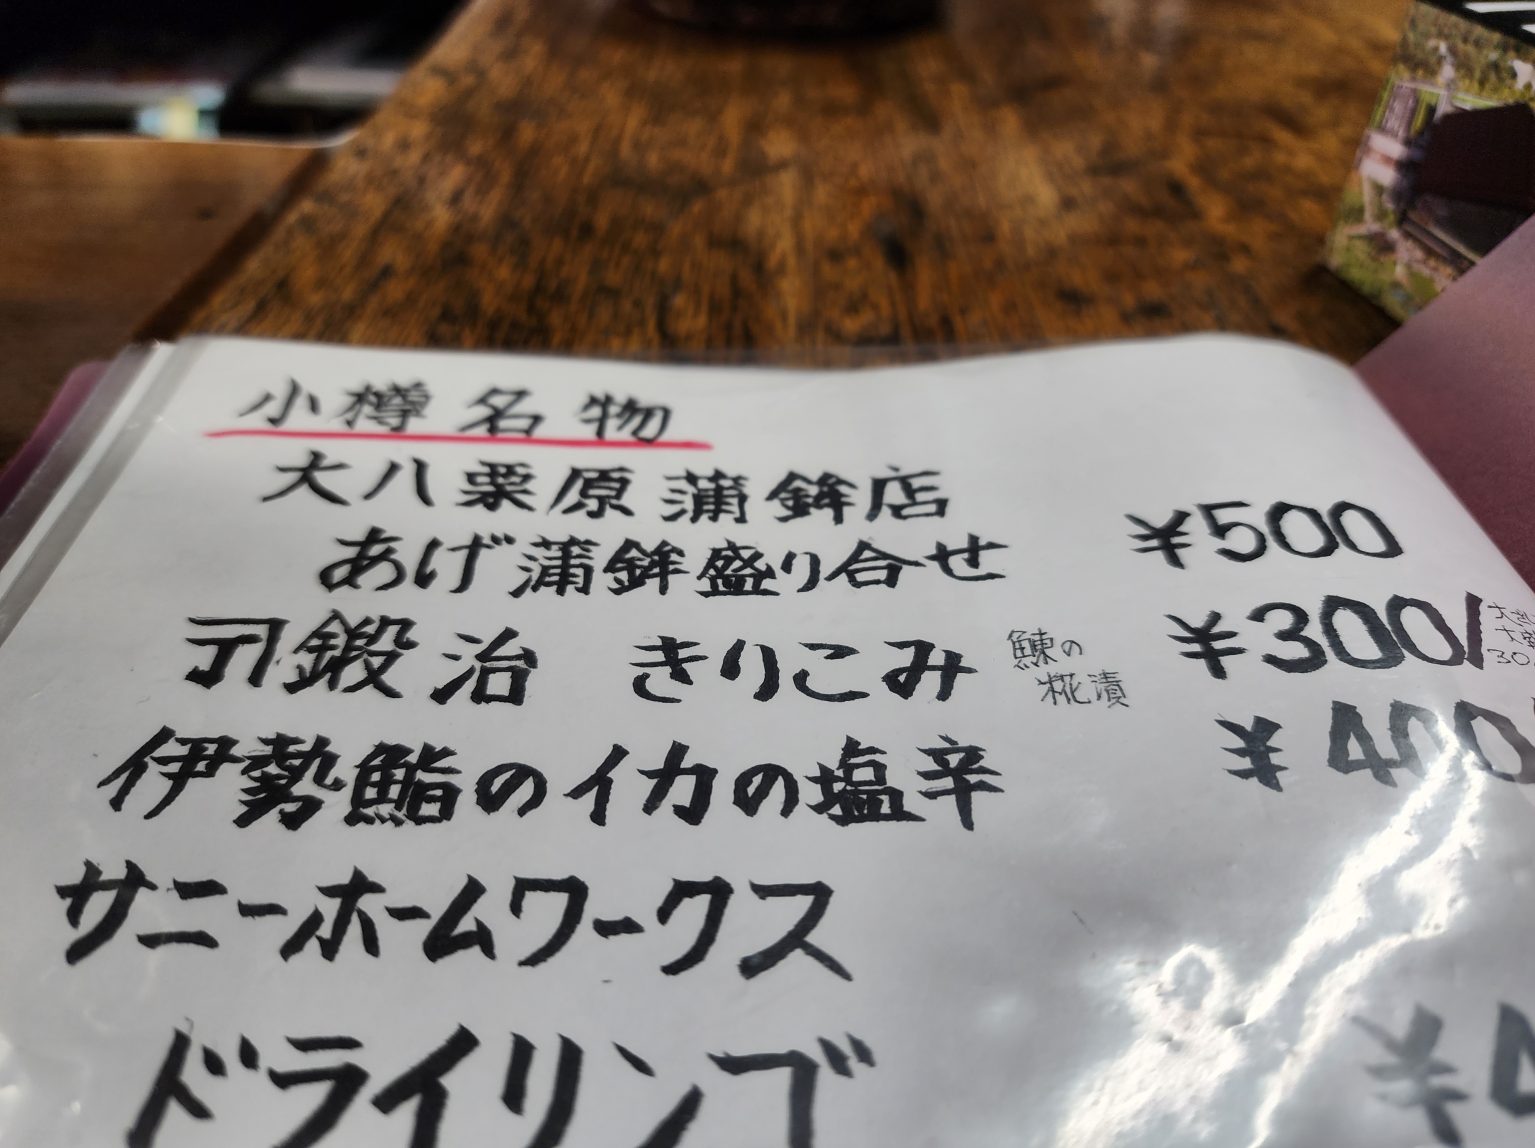 小樽名物
大八栗原蒲鉾店
あげ蒲鉾盛り合せ ¥500
鍛治 きりこみ 鰊の糀漬 ¥300/
伊勢鮨のイカの塩辛 ¥400
サニーホームワークス
ドライリンゴ ¥4